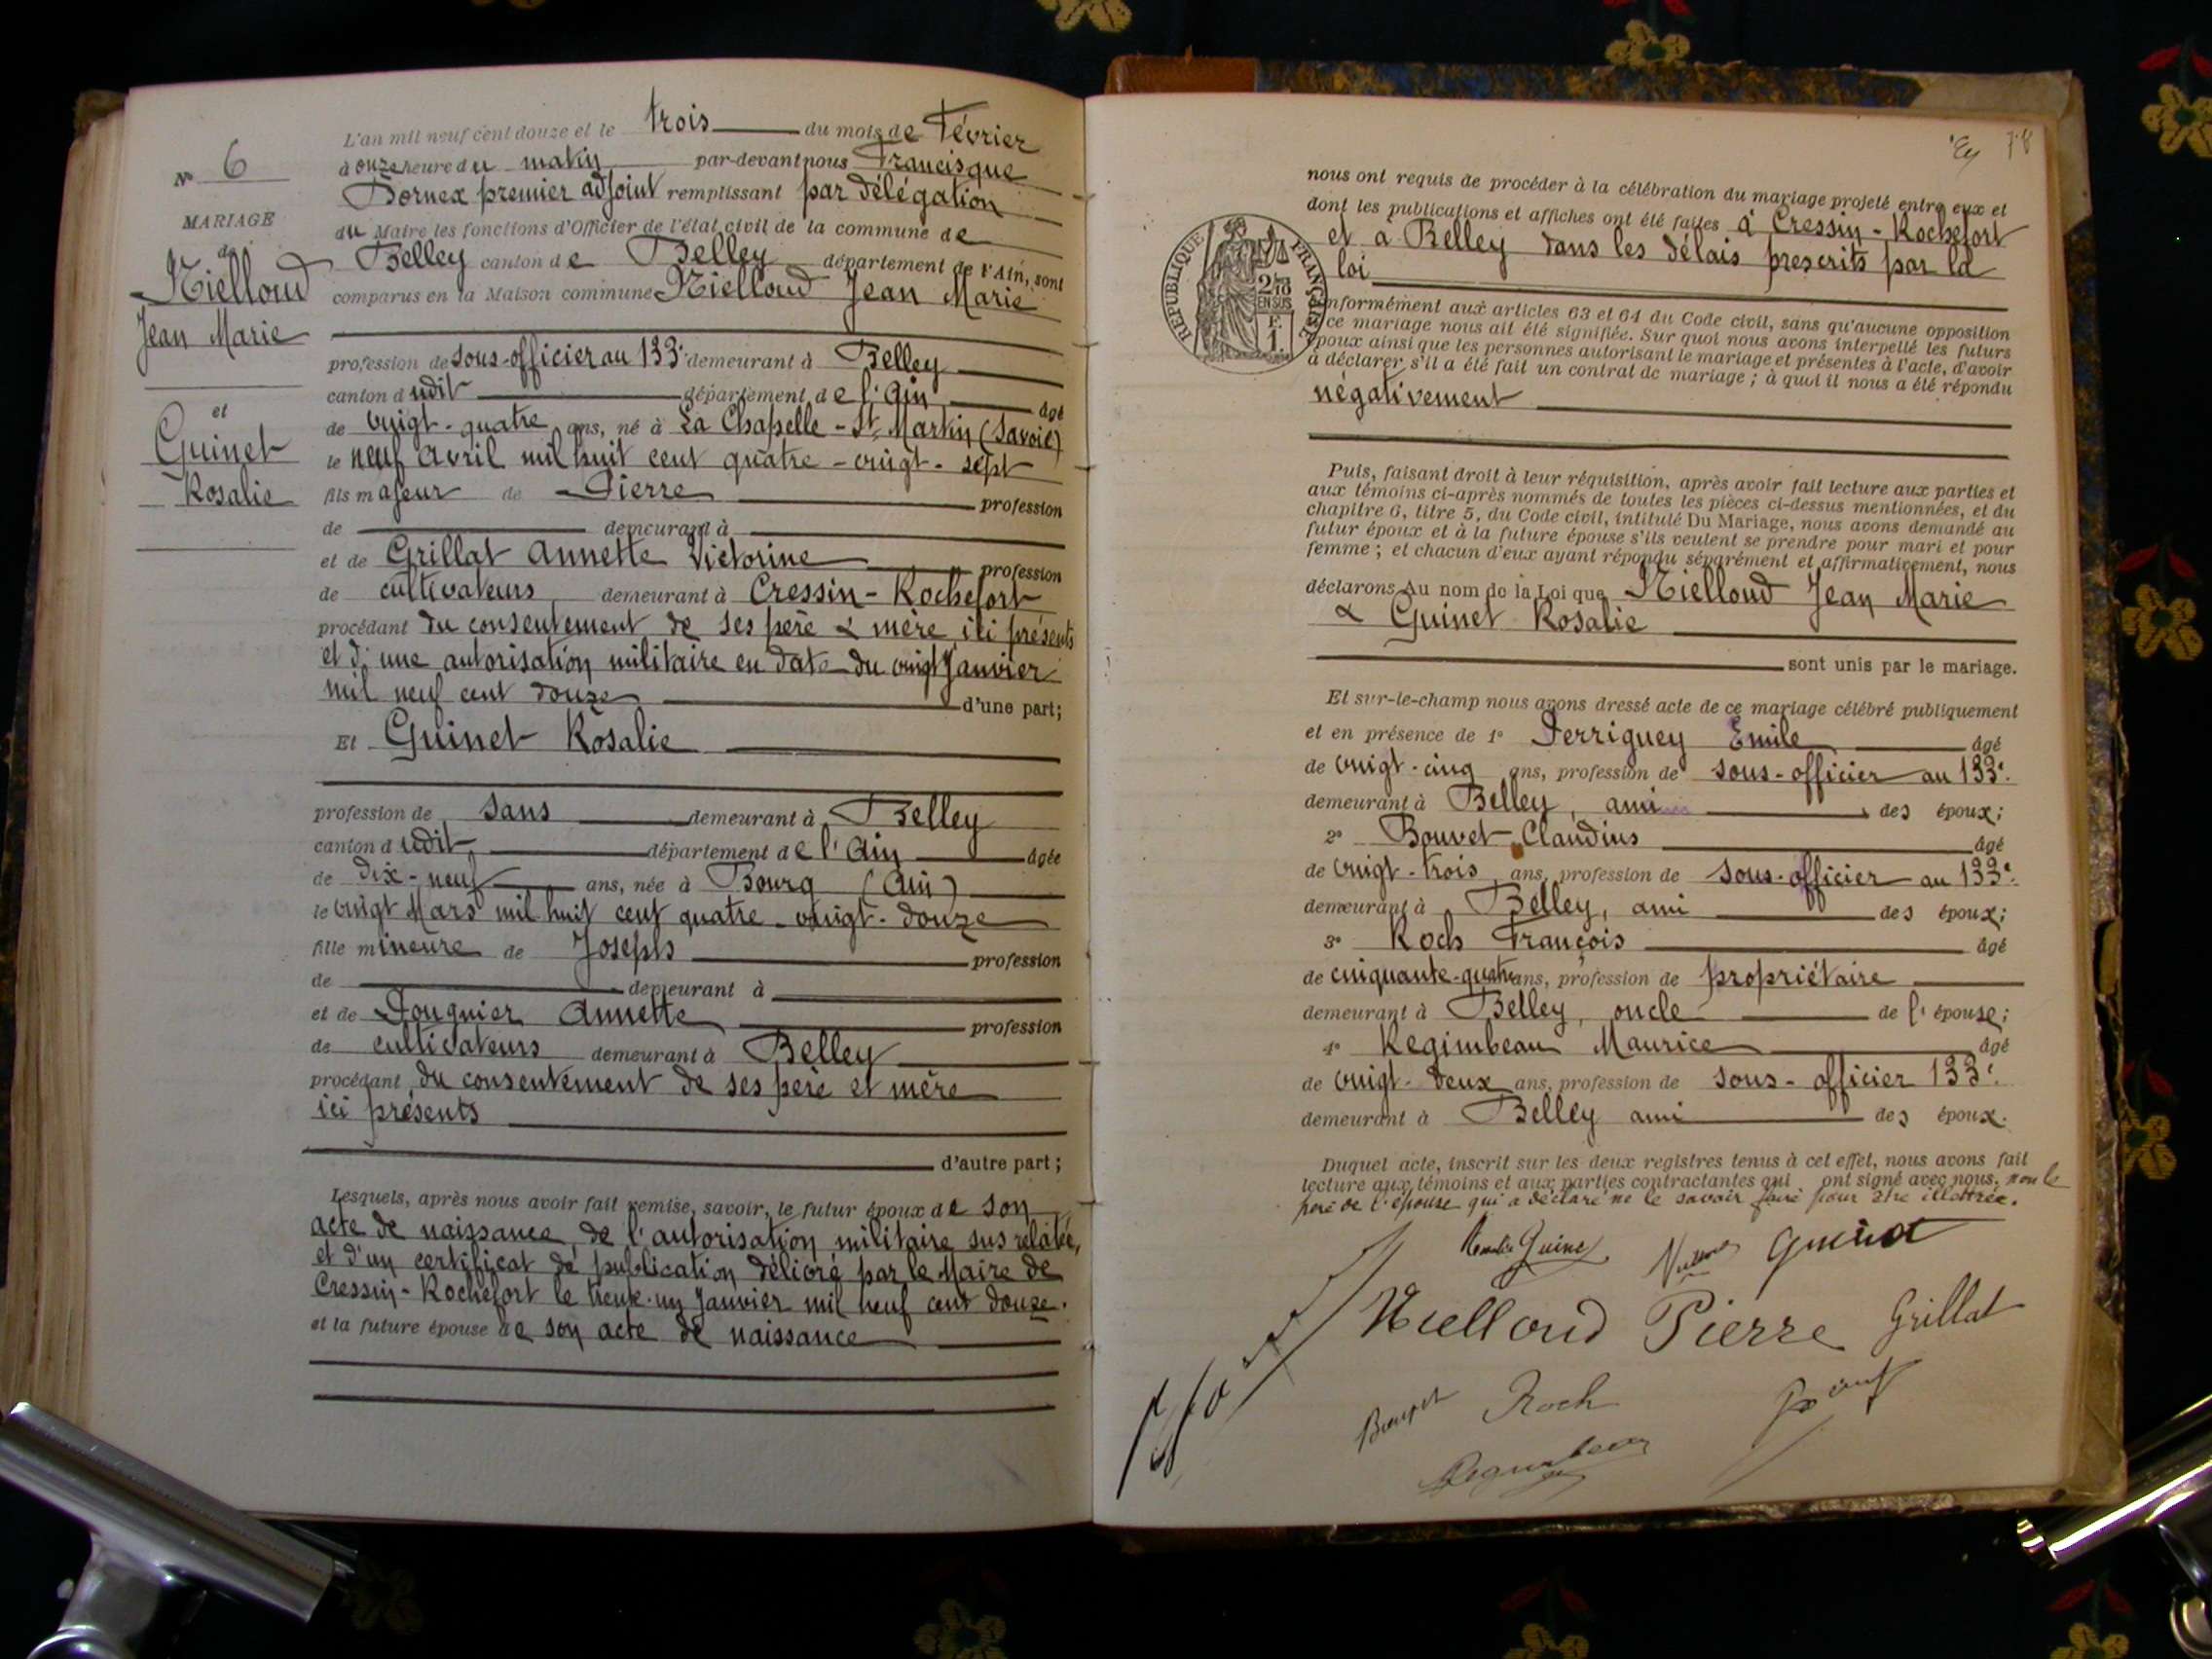 N° 6
MARIAGE
de
Nielloud
Jean Marie
et
Guinet
Rosalie
L'an mil neuf cent douze et le trois du mois de Février
à onze heure du matin par-devant nous Francisque
Dornex premier adjoint remplissant par délégation
du Maire les fonctions d'Officier de l'état civil de la commune de
Belley canton de Belley département de l'Ain, sont
comparus en la Maison commune Nielloud Jean Marie
profession de sous-officier au 133e demeurant à Belley
canton dudit département de l'Ain âgé
de vingt-quatre ans, né à La Chapelle-St Martin (Savoie)
le neuf Avril mil huit cent quatre-vingt-sept
fils majeur de Pierre profession
de demeurant à
et de Grillat Annette Victorine profession
de cultivateurs demeurant à Cressin-Rochefort
procédant du consentement de ses père & mère ici présents
et d'une autorisation militaire en date du vingt Janvier
mil neuf cent douze d'une part;
Et Guinet Rosalie
profession de sans demeurant à Belley
canton dudit département de l'Ain âgée
de dix-neuf ans, née à Bourg (Ain)
le vingt Mars mil huit cent quatre-vingt-douze
fille mineure de Joseph profession
de demeurant à
et de Fouquier Annette profession
de cultivateurs demeurant à Belley
procédant du consentement de ses père et mère
ici présents
d'autre part;
Lesquels, après nous avoir fait remise, savoir, le futur époux de son
acte de naissance, de l'autorisation militaire sus relatée,
et d'un certificat de publication délivré par le Maire de
Cressin-Rochefort le trente-un Janvier mil neuf cent douze.
et la future épouse de son acte de naissance
78
nous ont requis de procéder à la célébration du mariage projeté entre eux et
dont les publications et affiches ont été faites à Cressin-Rochefort
et à Belley dans les délais prescrits par la
loi
RÉPUBLIQUE FRANÇAISE
2/10
EN SUS
F.
1.
conformément aux articles 63 et 64 du Code civil, sans qu'aucune opposition
à ce mariage nous ait été signifiée. Sur quoi nous avons interpellé les futurs
époux ainsi que les personnes autorisant le mariage et présentes à l'acte, d'avoir
à déclarer s'il a été fait un contrat de mariage; à quoi il nous a été répondu
négativement
Puis, faisant droit à leur réquisition, après avoir fait lecture aux parties et
aux témoins ci-après nommés de toutes les pièces ci-dessus mentionnées, et du
chapitre 6, titre 5, du Code civil, intitulé Du Mariage, nous avons demandé au
futur époux et à la future épouse s'ils veulent se prendre pour mari et pour
femme; et chacun d'eux ayant répondu séparément et affirmativement, nous
déclarons Au nom de la Loi que Nielloud Jean Marie
& Guinet Rosalie
sont unis par le mariage.
Et sur-le-champ nous avons dressé acte de ce mariage célébré publiquement
et en présence de 1° Perriguey Emile âgé
de vingt-cinq ans, profession de sous-officier au 133e
demeurant à Belley, ami des époux;
2° Bouvet Claudius âgé
de vingt-trois ans, profession de sous-officier au 133e
demeurant à Belley, ami des époux;
3° Roch François âgé
de cinquante-quatre ans, profession de propriétaire
demeurant à Belley, oncle de l'épouse;
4° Regimbeau Maurice âgé
de vingt-deux ans, profession de sous-officier 133e
demeurant à Belley ami des époux.
Duquel acte, inscrit sur les deux registres tenus à cet effet, nous avons fait
lecture aux témoins et aux parties contractantes qui ont signé avec nous, non le
père de l'épouse qui a déclaré ne le savoir faire pour être illettrée.
Rosalie Guinet Guinet
Nielloud Pierre Grillat
Bouvet Roch
Regimbeau